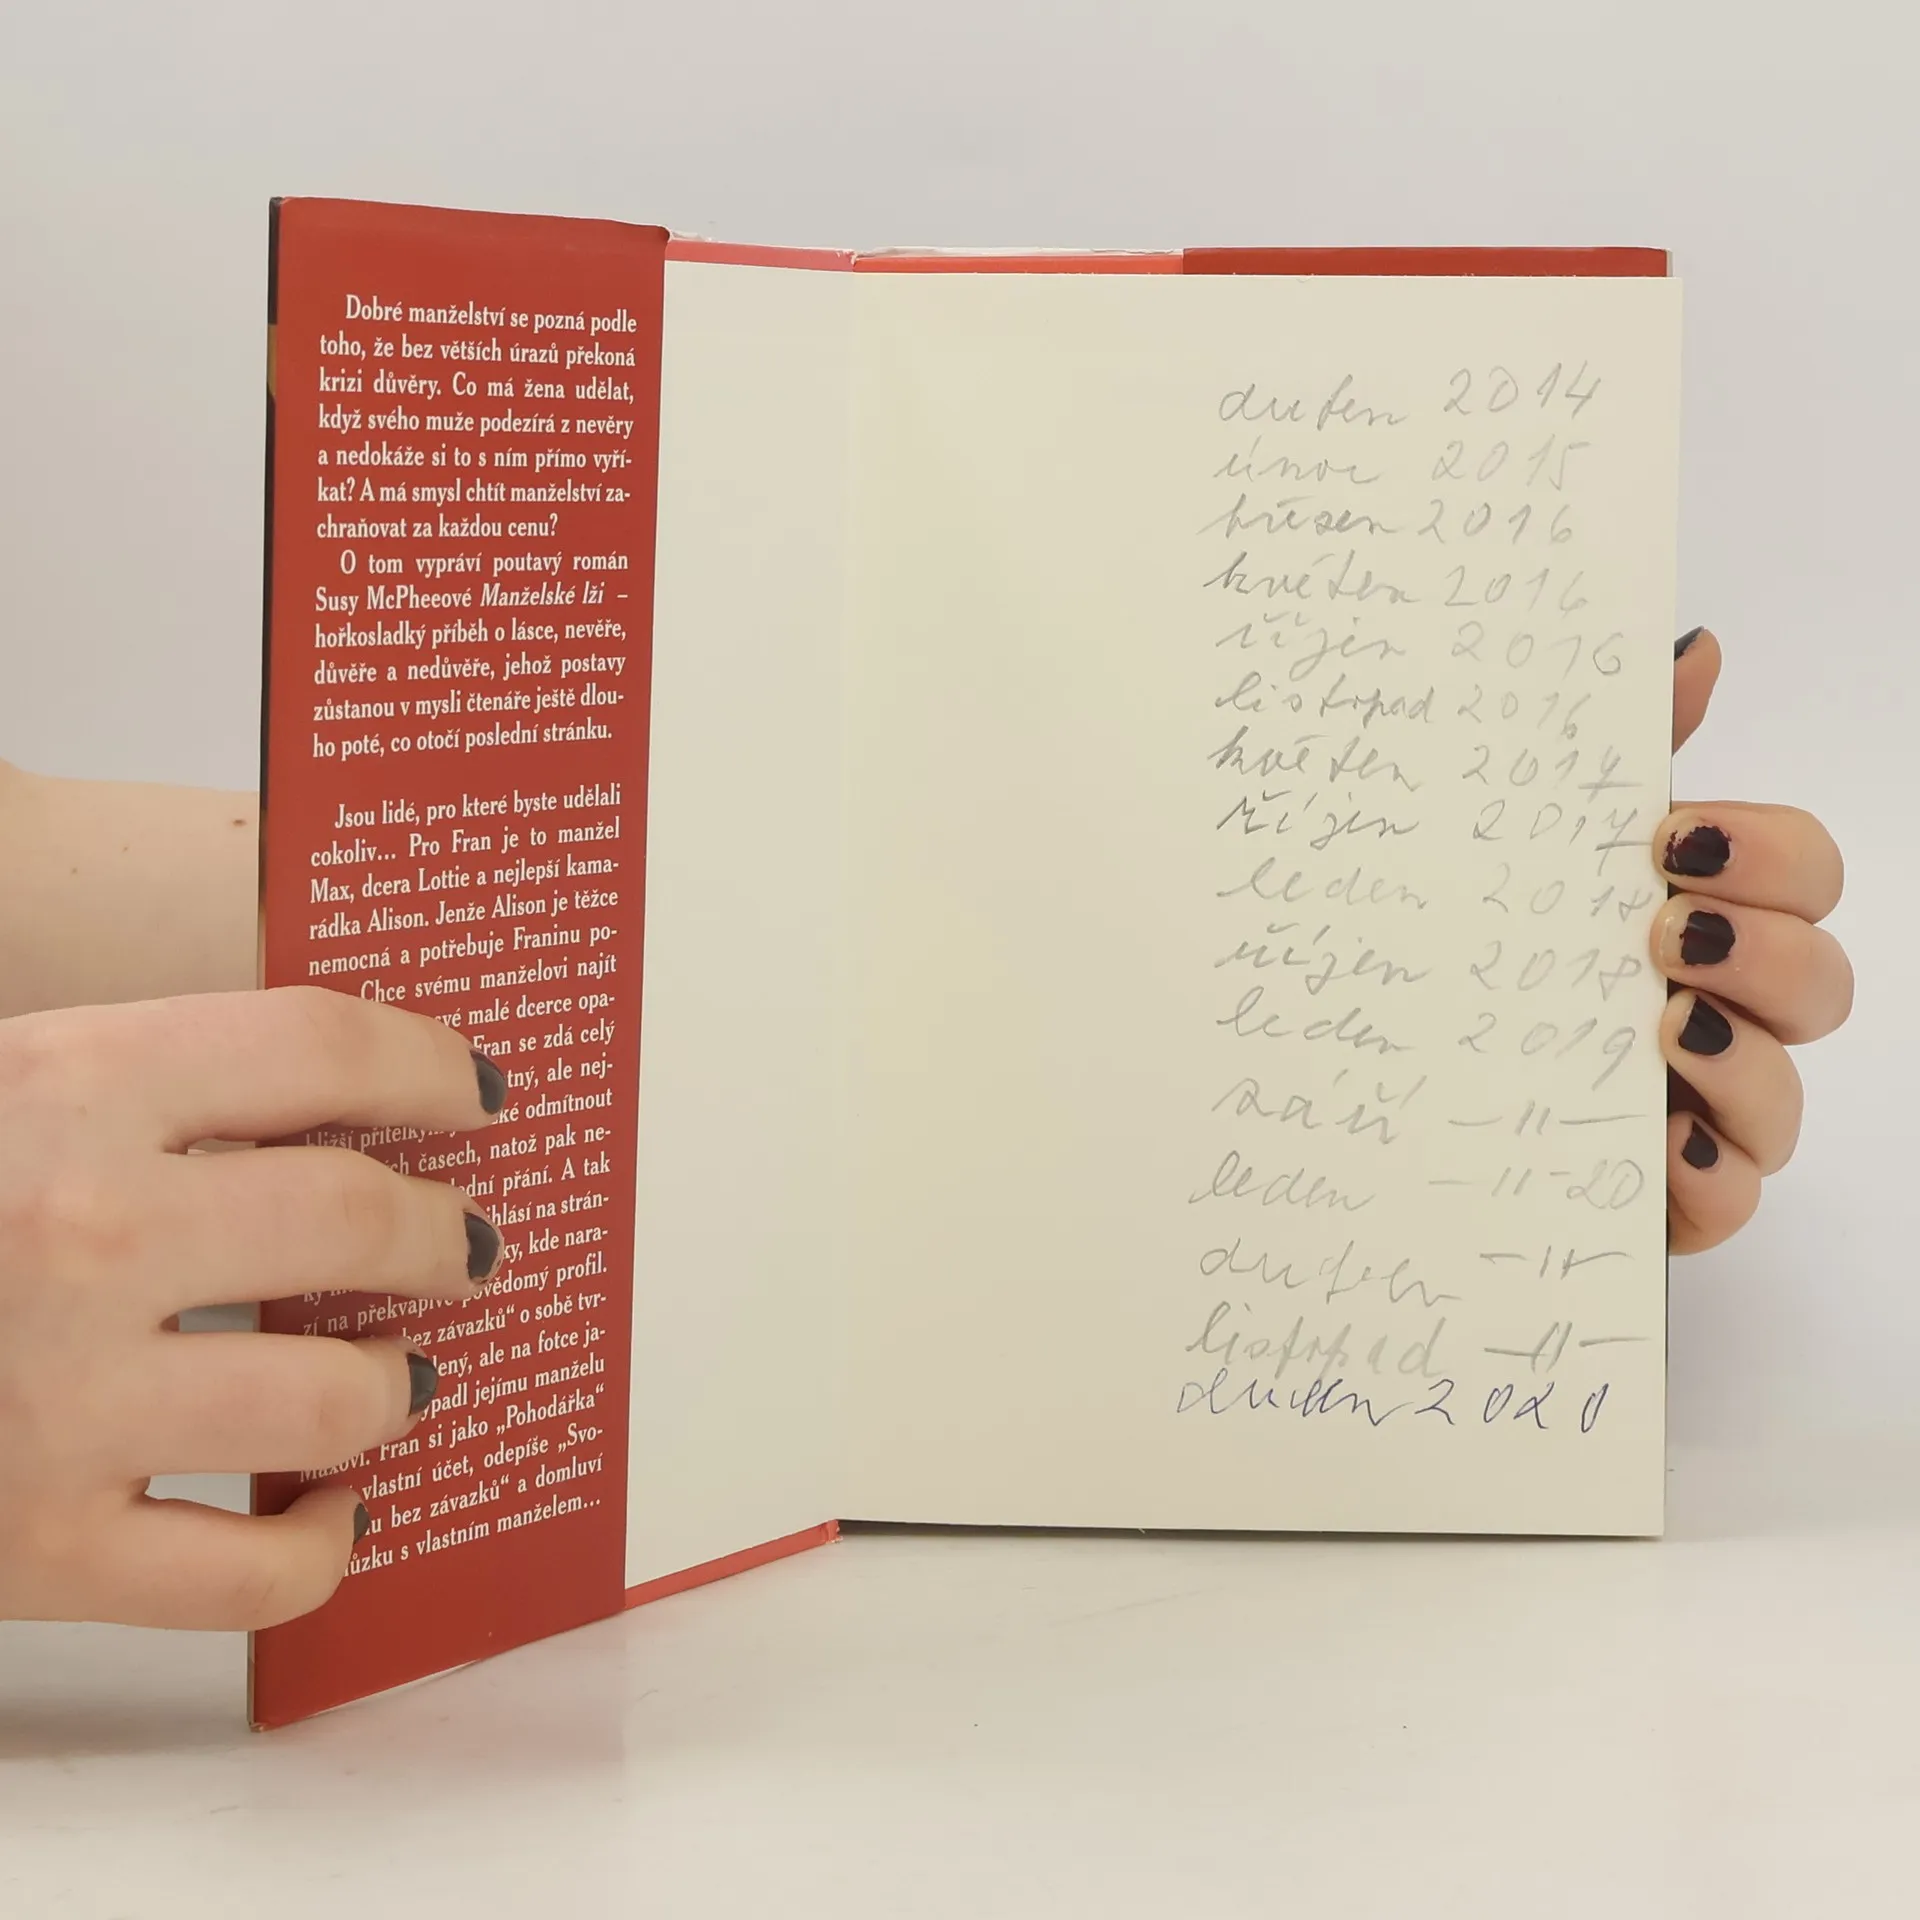 Dobré manželství se pozná podle
toho, že bez větších úrazů překoná
krizi důvěry. Co má žena udělat,
když svého muže podezírá z nevěry
a nedokáže si to s ním přímo vyří-
kat? A má smysl chtít manželství za-
chraňovat za každou cenu?
O tom vypráví poutavý román
Susy McPheeové Manželské lži –
hořkosladký příběh o lásce, nevěře,
důvěře a nedůvěře, jehož postavy
zůstanou v mysli čtenáře ještě dlou-
ho poté, co otočí poslední stránku.
Jsou lidé, pro které byste udělali
cokoliv... Pro Fran je to manžel
Max, dcera Lottie a nejlepší kama-
rádka Alison. Jenže Alison je těžce
nemocná a potřebuje Franinu po-
Chce svému manželovi najít
své malé dcerce opa-
Fran se zdá celý
tný, ale nej-
ké odmítnout
bližší přítelky
ch časech, natož pak ne-
ední přání. A tak
ihlásí na strán-
ky, kde nara-
zí na překvapivě povědomý profil.
bez závazků“ o sobě tvr-
lený, ale na fotce ja-
ypadl jejímu manželu
Maxovi. Fran si jako „Pohodářka“
vlastní účet, odepíše „Svo-
u bez závazků“ a domluví
ůzku s vlastním manželem...
duben 2014
únor 2015
březen 2016
květen 2016
říjen 2016
listopad 2016
květen 2017
říjen 2017
leden 2018
říjen 2018
leden 2019
září —11—
leden —11-20
duben —11—
listopad —11—
duben 2020